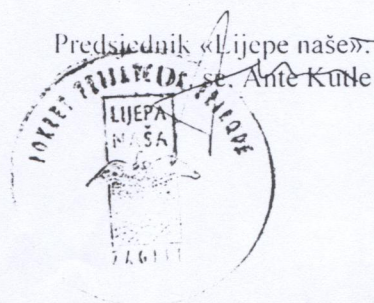 Predsjednik «Lijepe naše»:
sc. Ante Kutle
POKRET PRIJATELJA PRIRODE
LIJEPA
NAŠA
ZAGREB